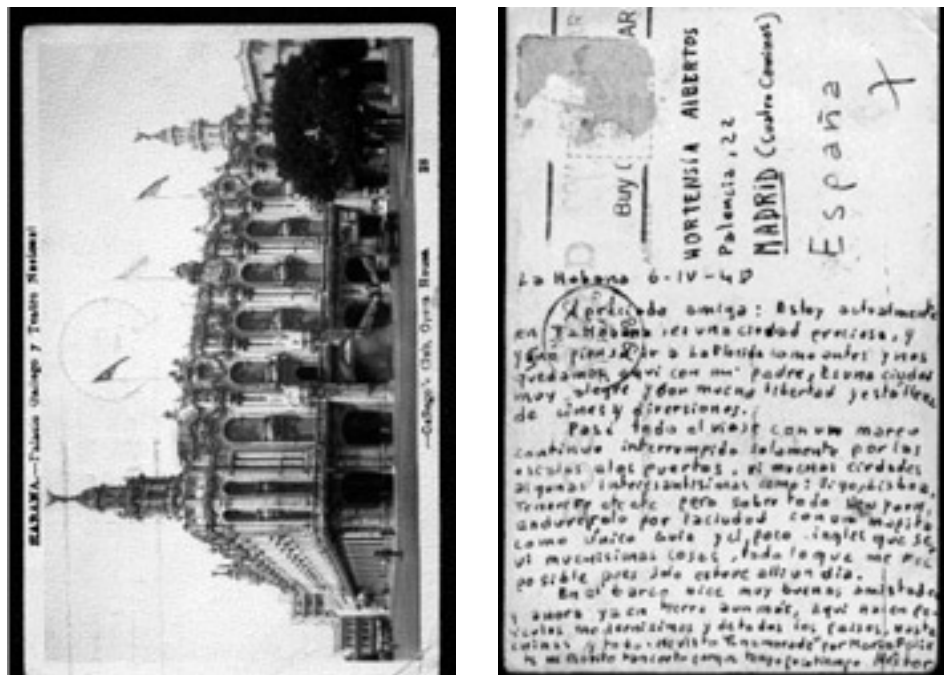 HABANA.—Palacio Gallego y Teatro Nacional
—Gallego's Club, Opera House. 28
AR
Buy
HORTENSIA ALBERTOS
Palencia, 22
MADRID (Cuatro Caminos)
España
X
La Habana 6-IV-48
Apreciada amiga: Estoy actualmente
en La Habana, es una ciudad preciosa, y
ya no pienso ir a La Florida como antes y nos
quedamos aqui con mi padre, Es una ciudad
muy alegre y dan mucha libertad y esta llena
de cines y diversiones.
Pasé todo el viaje con un mareo
continuo interrumpido solamente por las
escalas a los puertos, vi muchas ciudades
algunas interesantisimas como: Vigo, Lisboa,
Tenerife pero sobre todo New York,
anduve solo por la ciudad con un mapita
como único guía y el poco ingles que se,
vi muchisimas cosas, todo lo que me fue
posible pues solo estuve alli un dia.
En el barco hice muy buenas amistades
y ahora ya en tierra aun más, aqui
modernisimos y de todos los paises, hasta
chinas y todo. He visto "Enamorada" por Maria Felix
Nestor